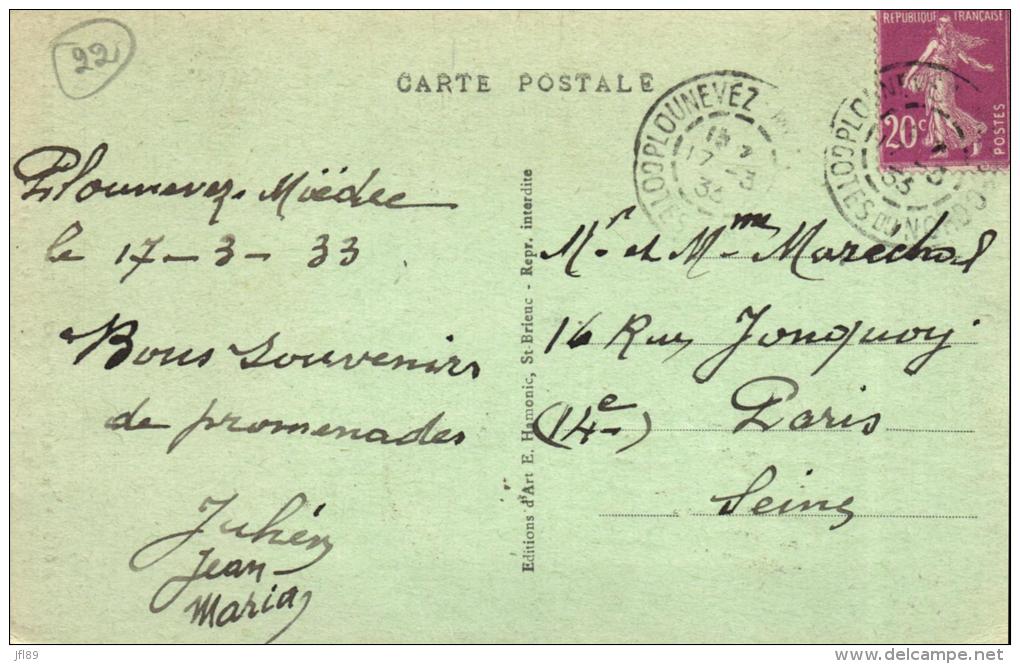 22
CARTE POSTALE
REPUBLIQUE FRANÇAISE
20c
POSTES
PLOUNEVEZ
17 3
33
PLOUNEVEZ
COTES DU NORD
Plounevez-Moëdec
le 17-3-33
Bons Souvenirs
de promenades
Jean
Maria
Editions d'Art E. Hamonic, St-Brieuc - Repr. interdite
Mr et Mme Marechal
16 Rue Jonquoy
(14e) Paris
Seine
jf89
www.delcampe.net